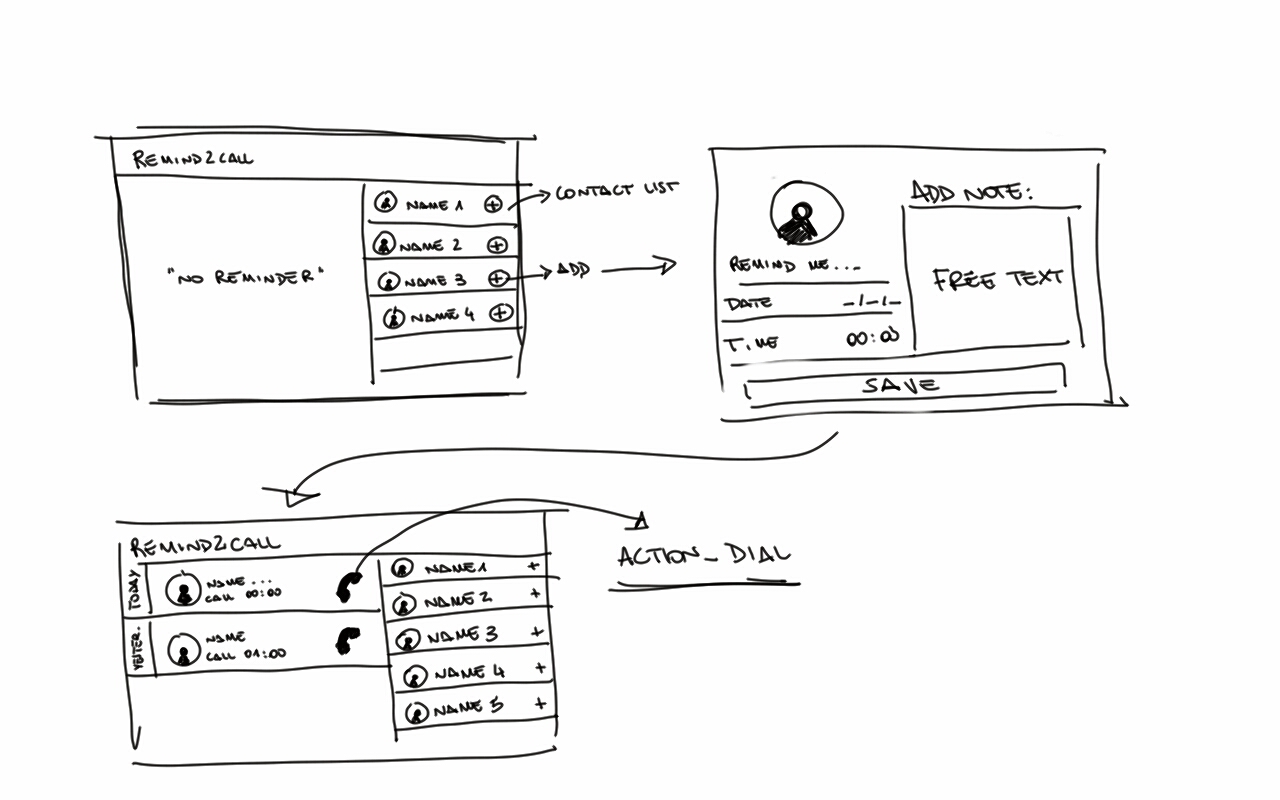 REMIND2CALL
"NO REMINDER"
NAME 1
NAME 2
NAME 3
NAME 4
CONTACT LIST
ADD
REMIND ME...
DATE _/_/_
TIME 00:00
ADD NOTE:
FREE TEXT
SAVE
REMIND2CALL
TODAY
NAME...
CALL 00:00
YESTER.
NAME
CALL 01:00
NAME 1 +
NAME 2 +
NAME 3 +
NAME 4 +
NAME 5 +
ACTION_DIAL